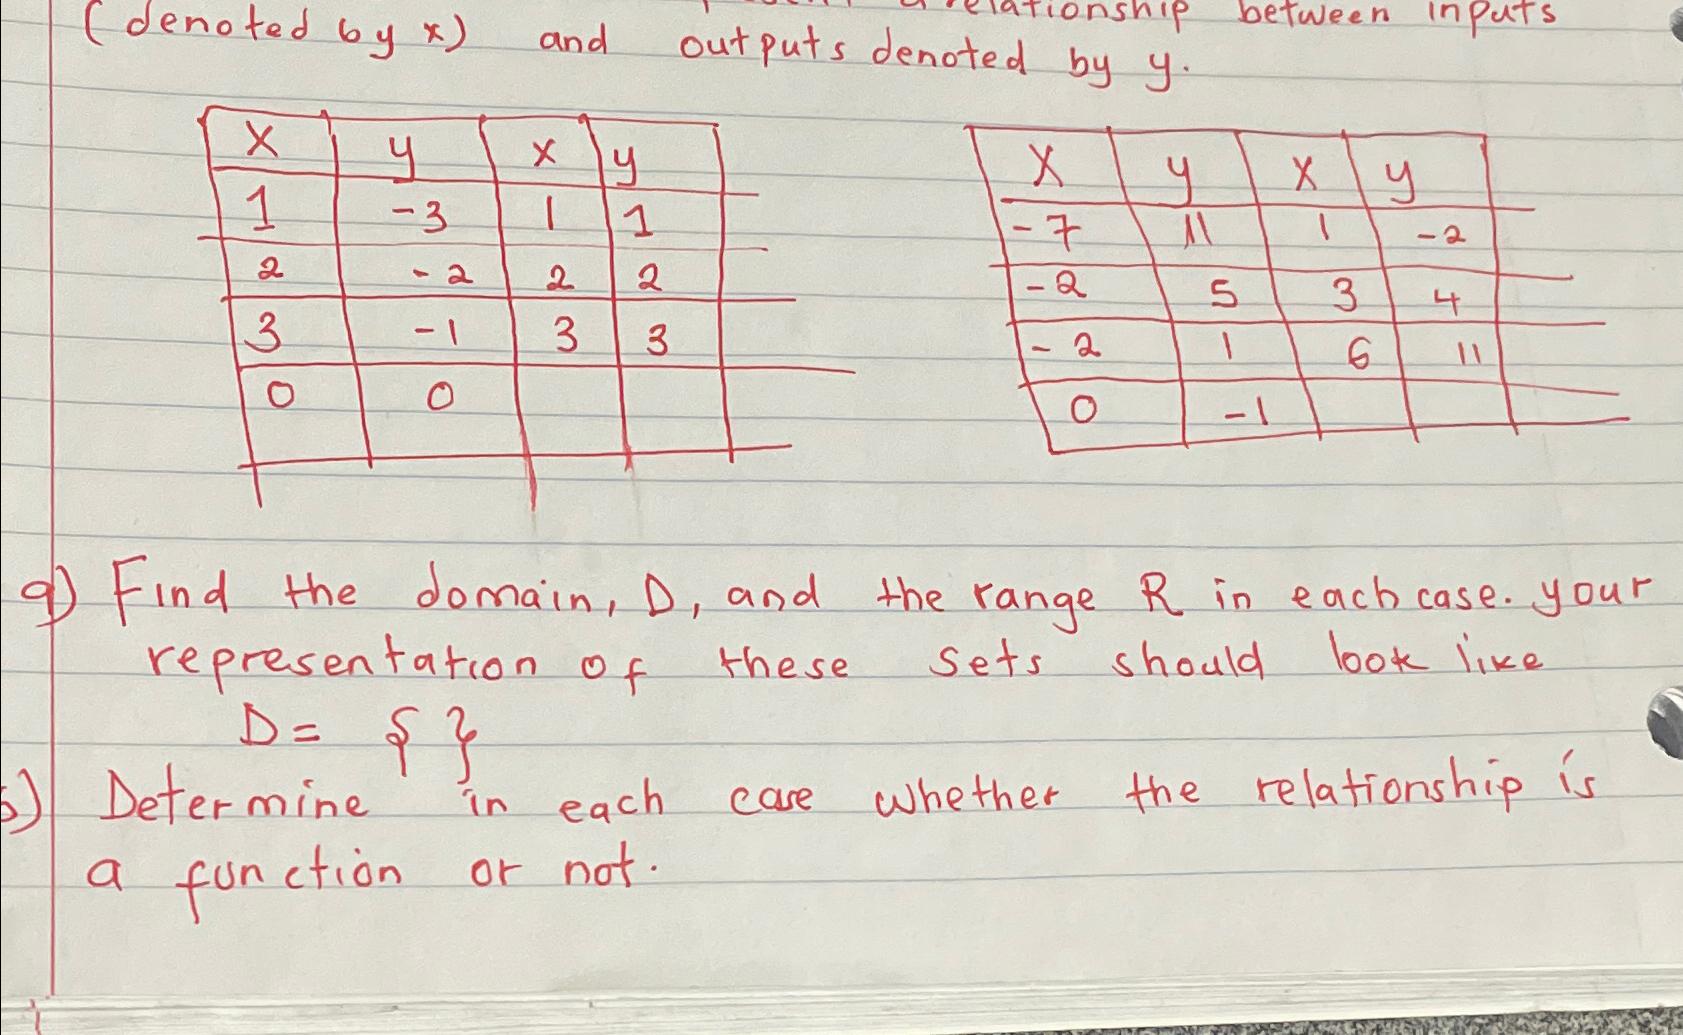 relationship between inputs
(denoted by x) and outputs denoted by y.
x y x y
1 -3 1 1
2 -2 2 2
3 -1 3 3
0 0
x y x y
-7 11 1 -2
-2 5 3 4
-2 1 6 11
0 -1
a) Find the domain, D, and the range R in each case. your
representation of these sets should look like
D= { }
b) Determine in each case whether the relationship is
a function or not.